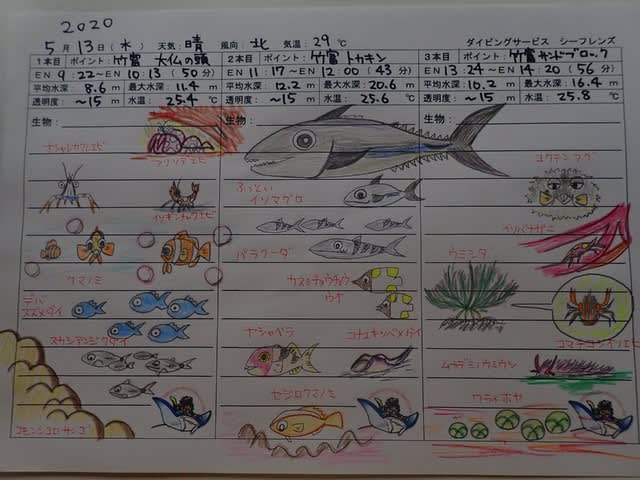 2020
5月13日(水) 天気:晴 風向:北 気温:29℃ ダイビングサービス シーフレンズ
1本目 ポイント:竹富 大仏の頭
EN 9:22〜EN 10:13 (50分)
平均水深:8.6m 最大水深:11.4m
透明度:〜15m 水温:25.4℃
生物:
オシャレカクレエビ
フリソデエビ
イソギンチャクエビ
クマノミ
デバスズメダイ
スカシテンジクダイ
コモンシコロサンゴ
2本目 ポイント:竹富 トカキン
EN 11:17〜EN 12:00 (43分)
平均水深:12.2m 最大水深:20.6m
透明度:〜15m 水温:25.6℃
生物:
ふっとい
イソマグロ
バラクーダ
カスミチョウチョウ
ウオ
ヤシャベラ
セジロクマノミ
3本目 ポイント:竹富サンドブロック
EN 13:24〜EN 14:20 (56分)
平均水深:10.2m 最大水深:16.4m
透明度:〜15m 水温:25.8℃
生物:
コクテンフグ
イソバナガニ
ウミシダ
コマチコシオリエビ
ムカデミノウミウシ
ワライボヤ